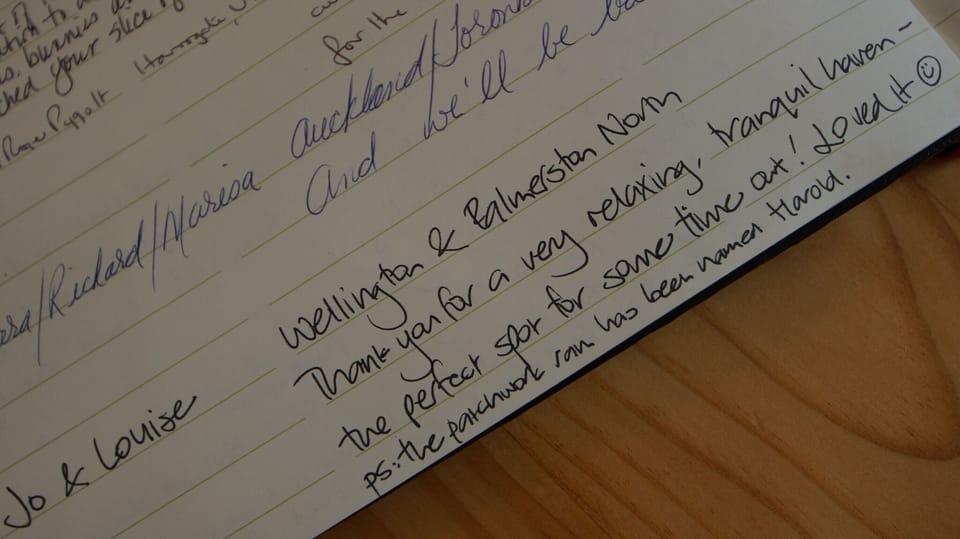 burnies
ched your slice
Harrogate,
for the
Roger Pyggott
/Richard/Marisa Auckland/Toronto
And we'll be
Jo & Louise Wellington & Palmerston North
Thank you for a very relaxing, tranquil haven -
the perfect spot for some time out! Loved it ☺
ps: the patchwork ram has been named Harold.